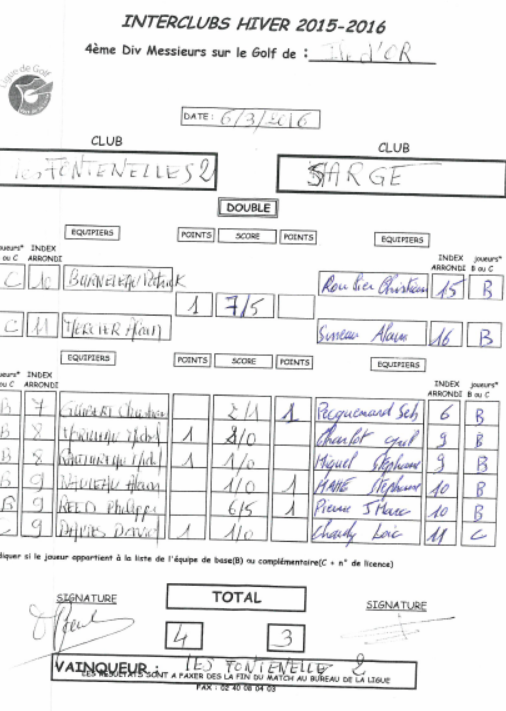 INTERCLUBS HIVER 2015-2016
4ème Div Messieurs sur le Golf de : Ile d'OR
Ligue de Golf
DATE: 6/3/2016
CLUB CLUB
les FONTENELLES 2 SARGE
DOUBLE
EQUIPIERS POINTS SCORE POINTS EQUIPIERS
joueurs* ou C INDEX ARRONDI INDEX ARRONDI joueurs* B ou C
C 10 Patrick 1 7/5 Christian 15 B
C 11 MERCIER Alain Simeau Alain 16 B
EQUIPIERS POINTS SCORE POINTS EQUIPIERS
INDEX ARRONDI INDEX ARRONDI joueurs* B ou C
B 7 Christian 2/1 1 Pecquenard Seb 6 B
B 8 Michel 1 2/0 Charlot 9 B
B 8 Michel 1 1/0 Miguel Stephane 9 B
B 9 Alain 1/0 1 MAHE Stephane 10 B
B 9 REED Philippe 6/5 1 Pierre J Marc 10 B
C 9 DAVIES David 1 1/0 Chaudy Loic 11 C
diquer si le joueur appartient à la liste de l'équipe de base(B) ou complémentaire(C + n° de licence)
SIGNATURE TOTAL SIGNATURE
4 3
VAINQUEUR : LES FONTENELLE 2
LES RESULTATS SONT A FAXER DES LA FIN DU MATCH AU BUREAU DE LA LIGUE
FAX : 02 40 08 04 03